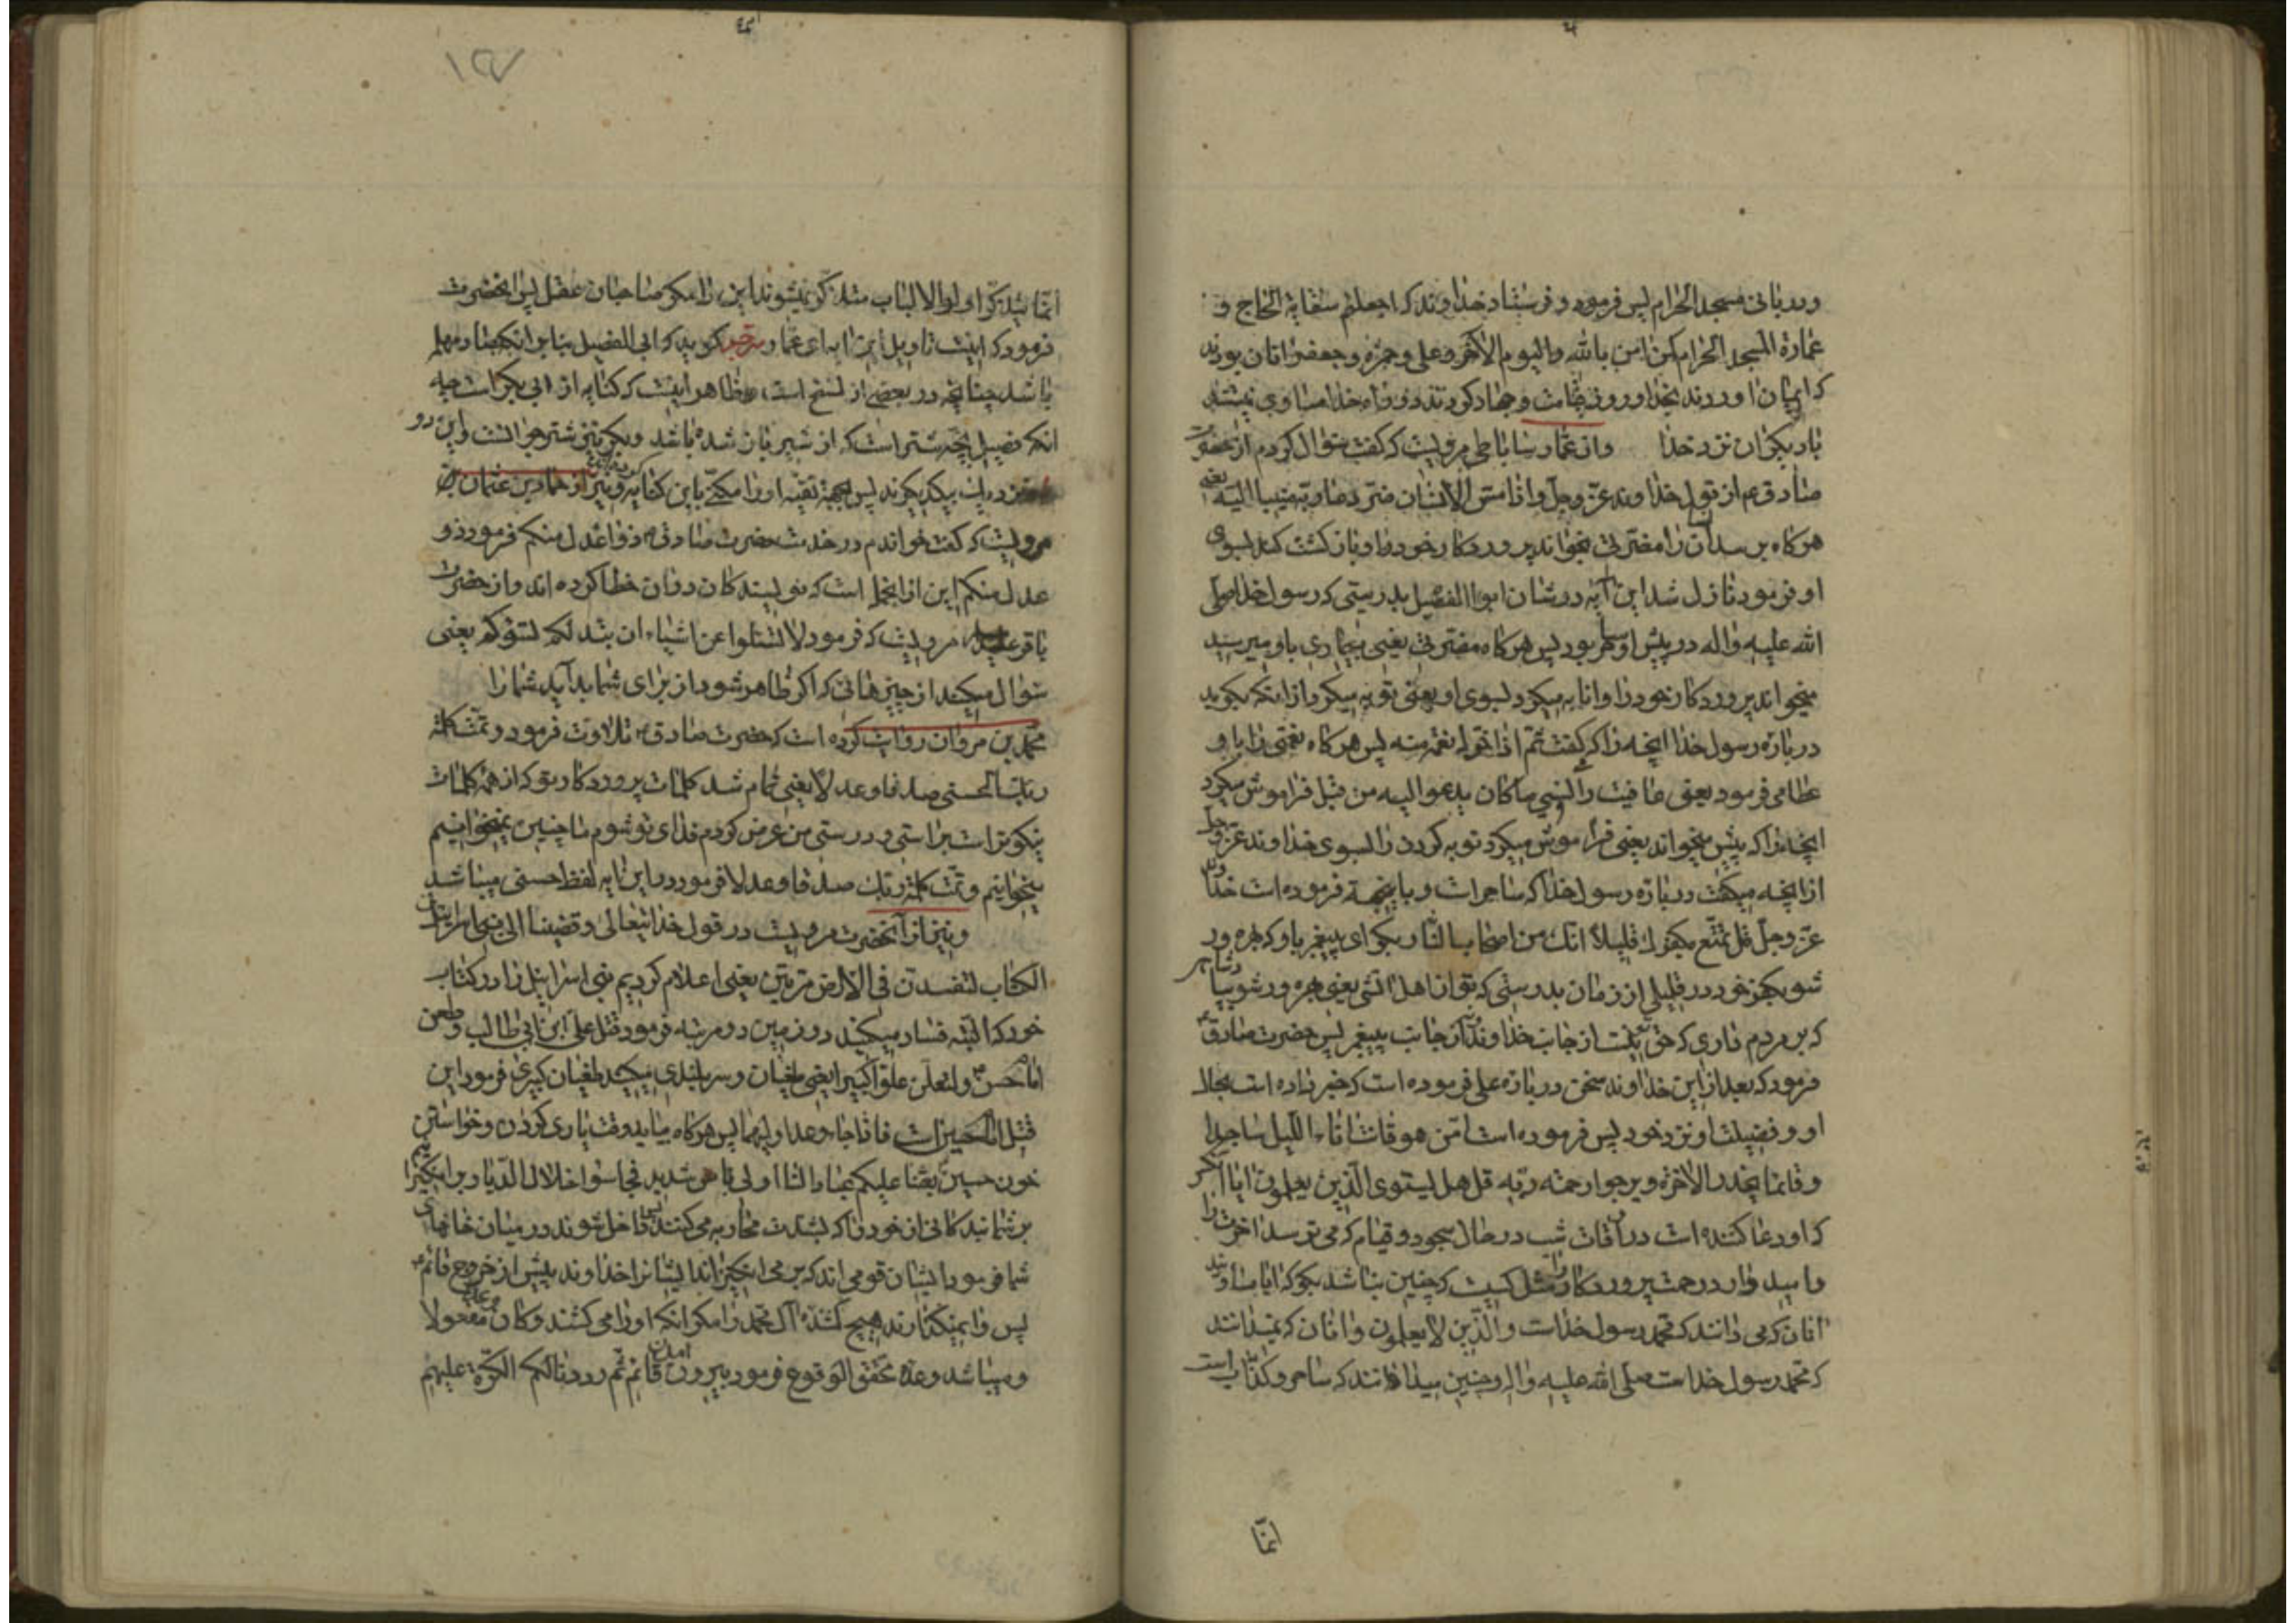 و دربانی مسجد الحرام پس فرمود و فرستاد خداوند که اجعلتم سقایة الحاج و
عمارة المسجد الحرام کمن امن بالله والیوم الاخر و علی و حمزه و جعفر انان بودند
که ایمان اوردند بخدا و روز قیامت و جهاد کردند در راه خدا مساوی نیستند
با دیگران نزد خدا و از عمار ساباطی مرویست که گفت سؤال کردم از حضرت
صادق ع از قول خداوند عز وجل واذا مس الانسان ضر دعا ربه منیبا الیه یعنی
هرگاه برسد انسان را مضرتی بخواند پروردگار خود را و بازگشت کند بسوی
او فرمود نازل شد این آیه در شان ابوالفصیل بدرستی که رسول خدا صلی
الله علیه واله در پیش او ساحر بود پس هرگاه مضرتی یعنی بیماری باو میرسید
میخواند پروردگار خود را و انابه میکرد بسوی او یعنی توبه میکرد از انکه بگوید
درباره رسول خدا انچه را که گفت ثم اذا خوله نعمة منه پس هرگاه نعمتی را باو
عطا می فرمود یعنی عافیت را نسی ما کان یدعوا الیه من قبل فراموش میکرد
انچه را که پیش میخواند یعنی فراموش میکرد توبه کردن را بسوی خداوند عز وجل
از انچه میگفت درباره رسول خدا که ساحر است و باینجهة فرموده است خدای
عز وجل قل تمتع بکفرک قلیلا انک من اصحاب النار بگو ای پیغمبر باو که بهره ور
شو بکفر خود در قلیلی از زمان بدرستی که تو از اهل اتشی یعنی بهره ور شو بپادشاهی
که بر مردم داری که حق تو نیست از جانب خداوند و نه از جانب پیغمبر پس حضرت صادق ع
فرمود که بعد از این خداوند سخن درباره علی فرموده است که خبر داده است بحال
او و فضیلت او نزد خود پس فرموده است امن هو قانت اناء اللیل ساجدا
و قائما یحذر الاخرة و یرجوا رحمة ربه قل هل یستوی الذین یعلمون ایا آنکس
که او دعا کننده است در اوقات شب در حال سجود و قیام که می ترسد اخرت را
و امیدوار در رحمت پروردگار را مثل کسیست که چنین نباشد بگو که ایا مساویند
انان که می دانند که محمد رسول خداست والذین لا یعلمون و انان که نمیدانند
که محمد رسول خداست صلی الله علیه واله و چنین میدانند که ساحر و کذاب است
انما
۱۵۷
انما یتذکر اولوا الالباب متذکر نمیشوند این را مگر صاحبان عقل پس انحضرت
فرمود که اینست تاویل این آیه ای عمار مترجم گوید که ابی الفصیل بنابر انکه بصاد مهمله
باشد چنانچه در بعضی از نسخ است، ظاهر اینست که کنایه از ابی بکر است چه
انکه فصیل بچه شتر است که از شیر باز شده باشد و بکر نیز شتر جوانست و این دو
نزدیک بیکدیگرند پس بجهة تقیه او را مکنی باین کنایه کرده اند و نیز از حماد بن عثمان
مرویست که گفت خواندم در خدمت حضرت صادق ع ذوا عدل منکم فرمود ذو
عدل منکم این از انجمله است که نویسندگان در ان خطا کرده اند و از حضرت
باقر علیه السلام مرویست که فرمود لا تسئلوا عن اشیاء ان تبد لکم تسؤکم یعنی
سؤال مکنید از چیزهائی که اگر ظاهر شود از برای شما بد آید شما را
محمد بن مروان روایت کرده است که حضرت صادق ع تلاوت فرمود و تمت کلمة
ربک الحسنی صدقا و عدلا یعنی تمام شد کلمات پروردگار تو که از همه کلمات
نیکوتر است براستی و درستی من عرض کردم فدای تو شوم ما چنین نمیخوانیم
میخوانیم و تمت کلمة ربک صدقا و عدلا فرمود در این ایه لفظ حسنی میباشد
و نیز از آنحضرت مرویست در قول خدایتعالی و قضینا الی بنی اسرائیل فی
الکتاب لتفسدن فی الارض مرتین یعنی اعلام کردیم بنی اسرائیل را در کتاب
خود که البته فساد میکنید در زمین دو مرتبه فرمود قتل علی ابن ابی طالب و طعن
امام حسن ع ولتعلن علوا کبیرا یعنی طغیان و سربلندی میکنید طغیان کبیری فرمود این
قتل امام حسین است فاذا جاء وعد اولیهما پس هرگاه بیاید وقت یاری کردن و خواستن
خون حسین ع بعثنا علیکم عبادا لنا اولی باس شدید فجاسوا خلال الدیار بر انگیزانیم
بر شما بندگانی از خود را که بشدت محاربه می کنند پس داخل شوند در میان خانهای
شما فرمود ایشان قومی اند که بر می انگیزاند ایشانرا خداوند پیش از خروج قائم ع
پس وا نمیگذارند هیچ کشنده آل محمد را مگر انکه او را می کشند وکان وعدا مفعولا
و میباشد وعده محقق الوقوع فرمود بیرون آمدن قائم ثم رددنا لکم الکرة علیهم